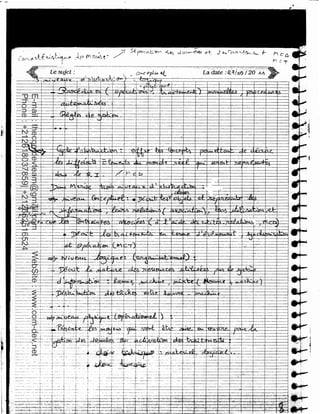 Caractéristique de Merise : Séparation des données et des traitements
MCD
MCT
Le sujet :
La date : 27/05/2011
conceptuel
niveaux d'abstraction :
Logique
physique
Procédures ( opérations, traitement) manuelles, procédures
automatisées
Règles de gestion
Cycle d'abstraction : offrir les concepts permettant de décrire
les différents éléments du monde réel qui seront représentés
dans le S.I.
Dans Merise trois niveaux d'abstraction :
niveau Conceptuel : Décrit les objets et représenter les
informations, leurs relations ( association), leurs utilisation, et
les contraintes associées
Décrit les traitements en terme d'événement, synchronisation
et opération (MCT)
Niveau logique (organisationnel) :
Décrit la nature des ressources utilisées par le système
d'information : homme, machine, mixte (Homme, machine)
Distribution des tâches entre homme machine
niveau physique (opérationnel) :
Présente les moyens qui vont être mis en oeuvre pour la
gestion des données ou activation des traitements :
choix technique : matériel, logiciel..
choix humains
Phone : +212678037659 / +212656116524
E-mail : thecomdevteam@gmail.com
WebSite : www.com-dev.net